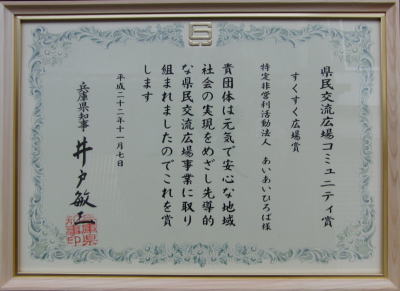 県民交流広場コミュニティ賞
すくすく広場賞
特定非営利活動法人 あいあいひろば様
貴団体は元気で安心な地域
社会の実現をめざし先導的
な県民交流広場事業に取り
組まれましたのでこれを賞
します
平成二十二年十一月七日
兵庫県知事 井戸敏三
兵庫県
知事印